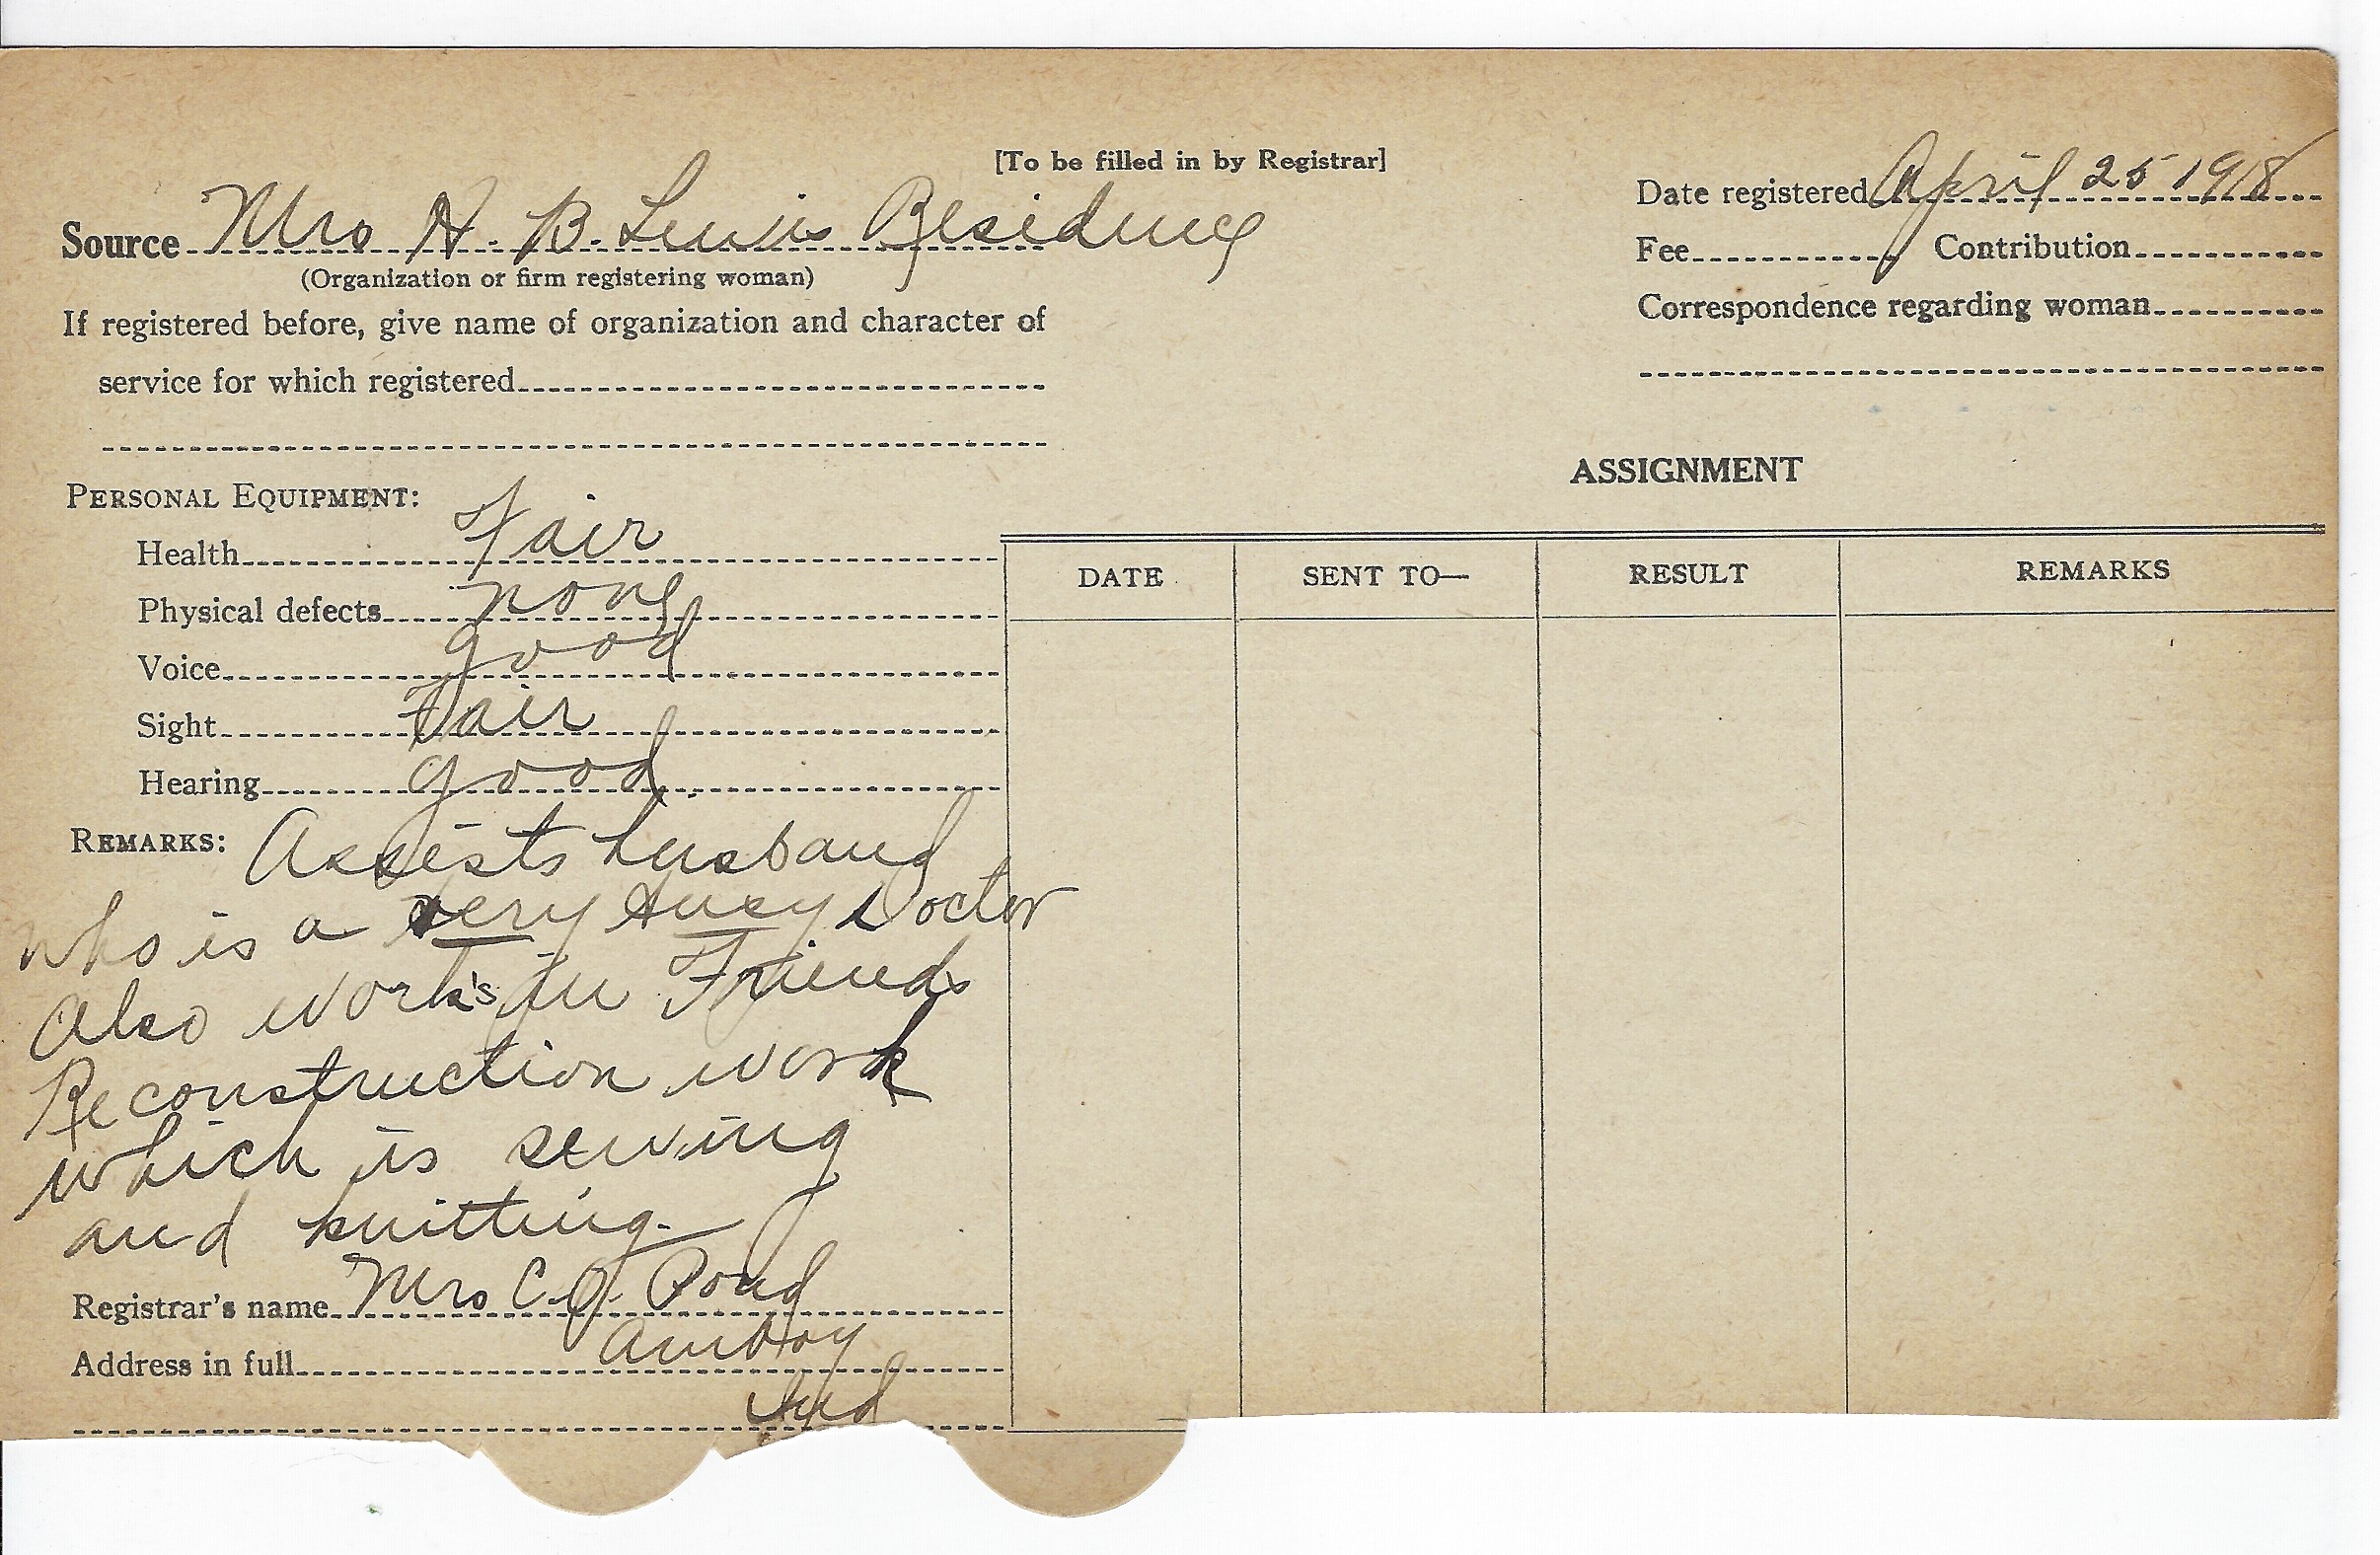 [To be filled in by Registrar]
Date registered April 25 1918
Source Mrs H. B. Lewis Residence
Fee Contribution
(Organization or firm registering woman)
Correspondence regarding woman
If registered before, give name of organization and character of
service for which registered
ASSIGNMENT
PERSONAL EQUIPMENT:
Health Fair
DATE SENT TO— RESULT REMARKS
Physical defects none
Voice good
Sight Fair
Hearing good
REMARKS: Assists husband
who is a very busy Doctor
Also work's in Friends
Reconstruction work
which is sewing
and knitting.
Registrar's name Mrs C. O. Pond
Address in full Amboy
Ind